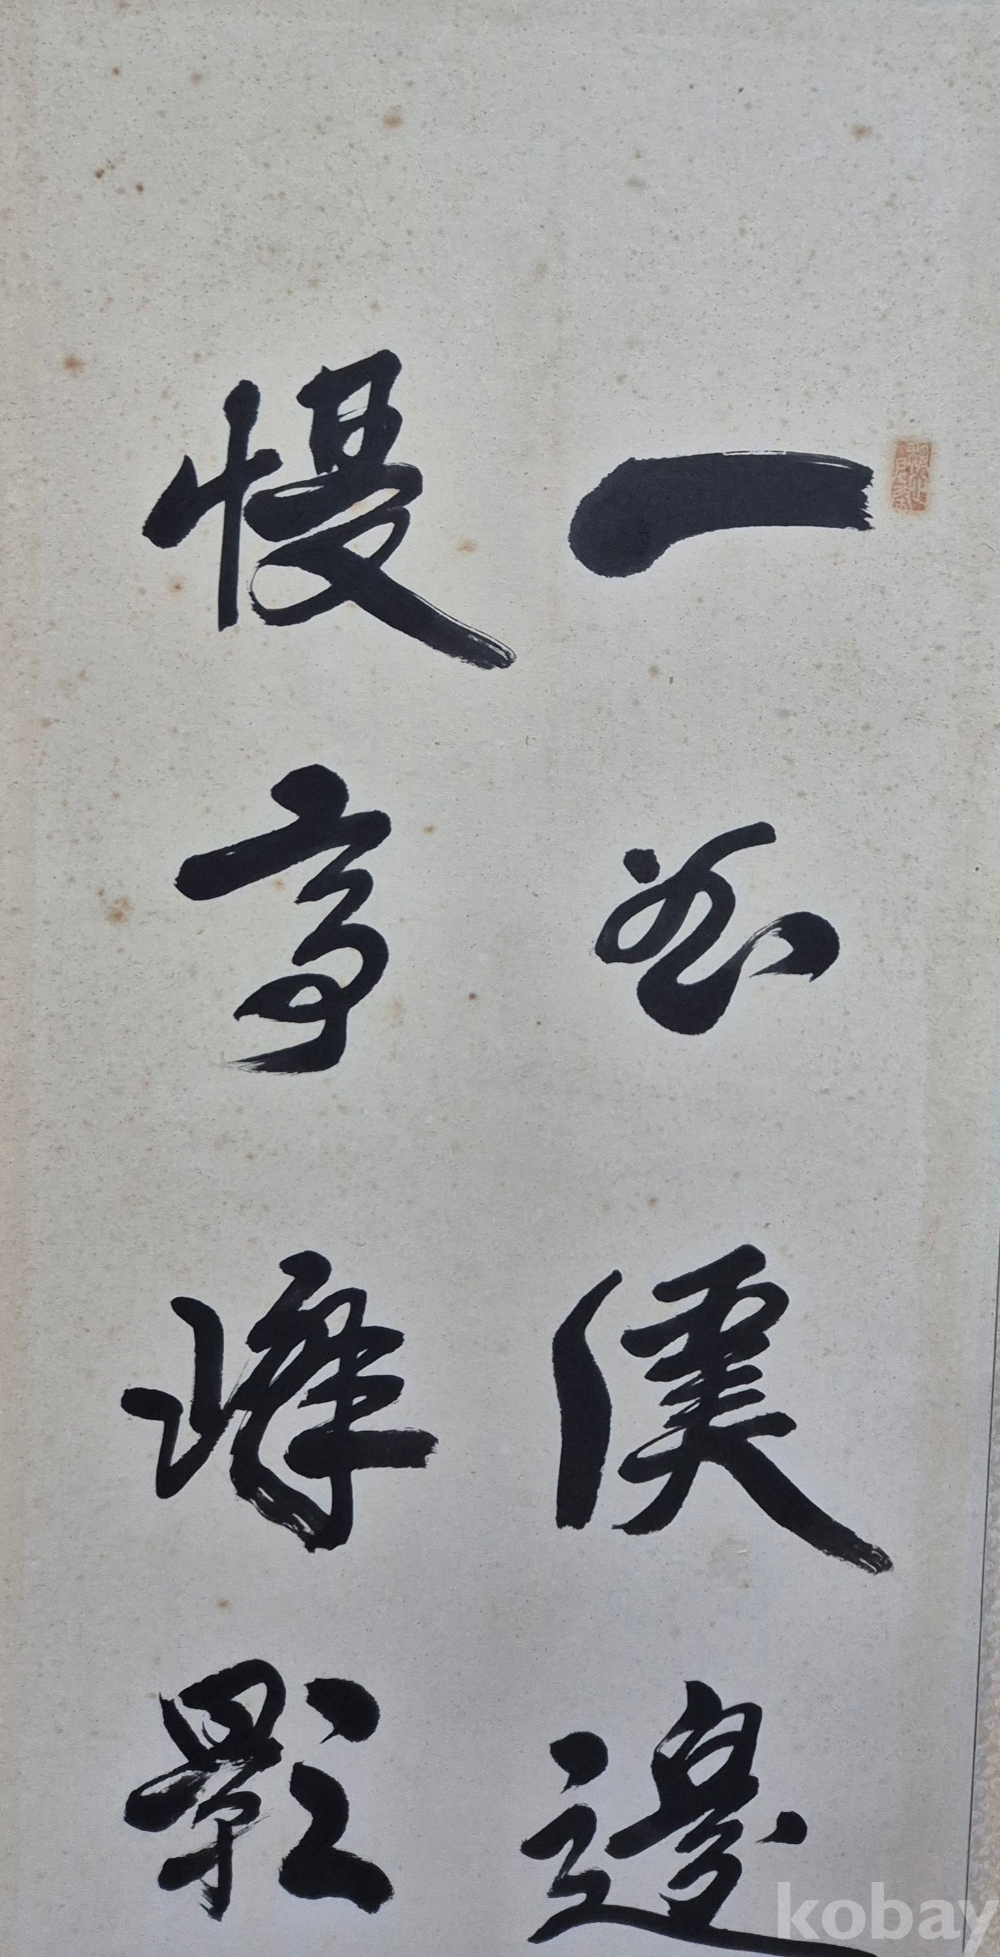 一曲溪邊
幔亭峰影
kobay